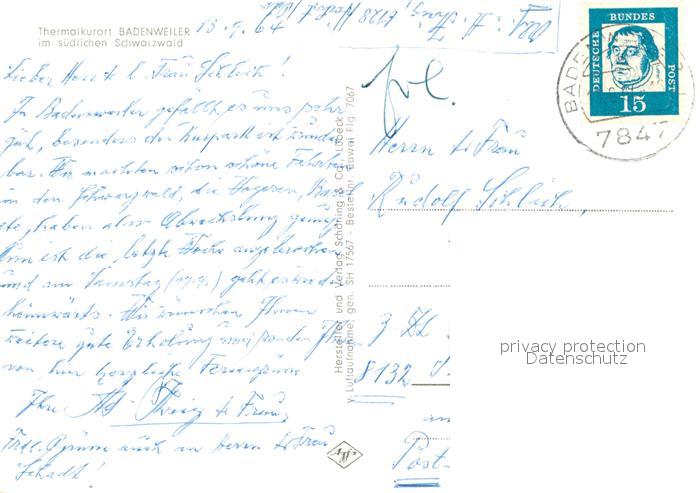 Thermalkurort BADENWEILER
im südlichen Schwarzwald
15.9.64
Lieber Herr u. l. Frau Schleich!
In Badenweiler gefällt es uns sehr
gut, besonders der Kurpark ist wunder
bar. Wir machten schon schöne Fahrten
in den Schwarzwald, die Vogesen, Basel
etc, haben also Abwechslung genug.
Nun ist die letzte Woche angebrochen
und am Samstag (19.9.) geht es wieder
heimwärts. Wir wünschen Ihnen
weitere gute Erholung und senden Ihnen
von hier herzliche Feriengrüsse
Ihre
u. Frau
Frdl. Grüsse auch an Herrn u. Frau
Schadt!
Hersteller und Verlag Schöning & Co., Lübeck
Luftaufnahme, gen. SH 17567 - Bestellnr. Bawei Flg. 7067
DEUTSCHE
BUNDES
POST
15
7847
Herrn u. Frau
Rudolf Schleich,
8132
Post-
privacy protection
Datenschutz